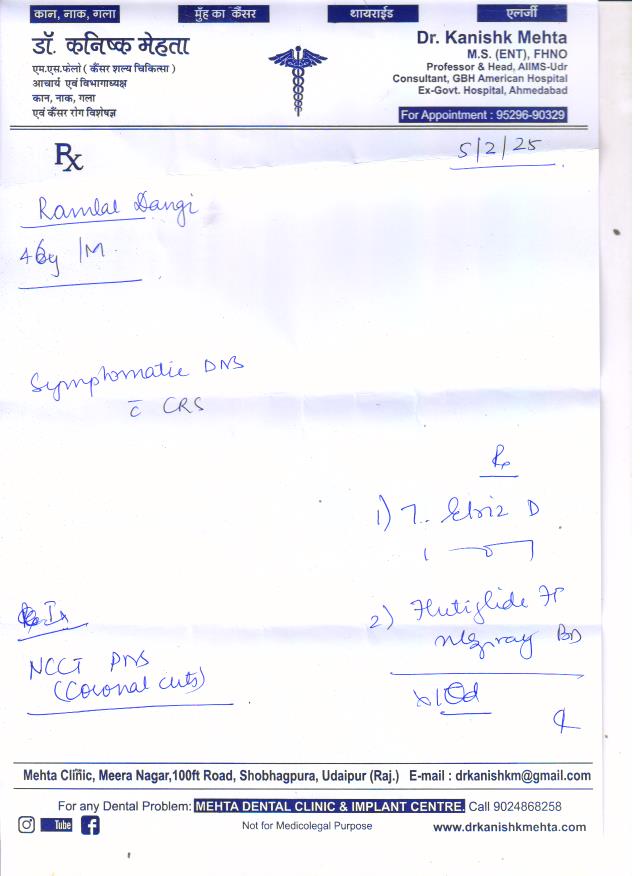 कान, नाक, गला
मुँह का कैंसर
थायराईड
एलर्जी
डॉ. कनिष्क मेहता
एम.एस.फेलो ( कैंसर शल्य चिकित्सा )
आचार्य एवं विभागाध्यक्ष
कान, नाक, गला
एवं कैंसर रोग विशेषज्ञ
Dr. Kanishk Mehta
M.S. (ENT), FHNO
Professor & Head, AIIMS-Udr
Consultant, GBH American Hospital
Ex-Govt. Hospital, Ahmedabad
For Appointment : 95296-90329
Rx
5/2/25
Ramlal Dangi
/M
Symptomatic DNS
c̄ CRS
Rx
1) T. D
1 — 0 — 1
2) Flutiglide
BD
x10d
NCCT PNS
(Coronal cuts)
Mehta Clinic, Meera Nagar,100ft Road, Shobhagpura, Udaipur (Raj.) E-mail : drkanishkm@gmail.com
For any Dental Problem: MEHTA DENTAL CLINIC & IMPLANT CENTRE, Call 9024868258
Tube
Not for Medicolegal Purpose
www.drkanishkmehta.com